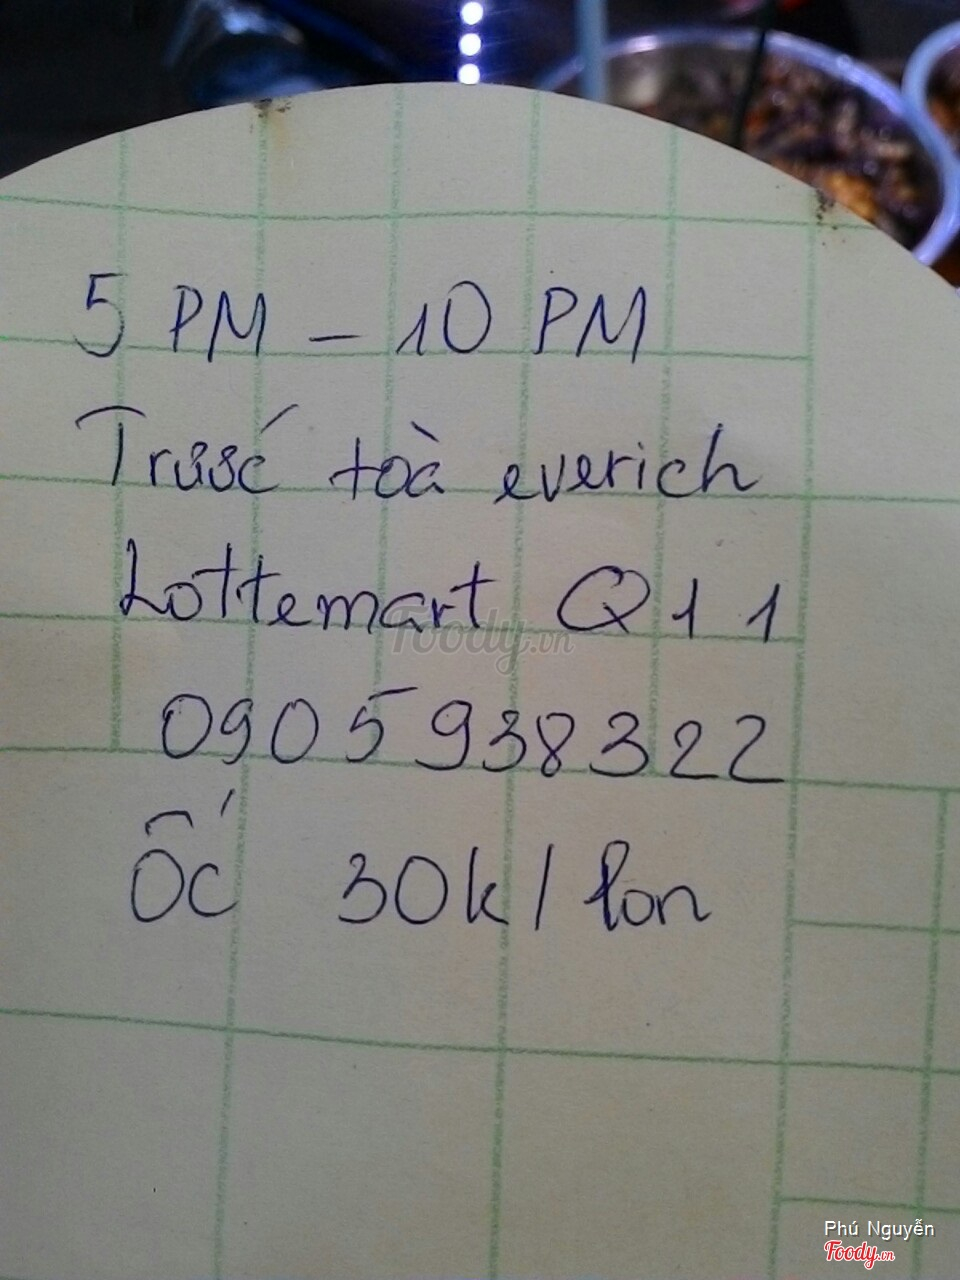 5 PM - 10 PM
Trước toà everich
Lottemart Q11
Foody.vn
0905938322
Ốc 30k/lon
Phú Nguyễn
Foody.vn